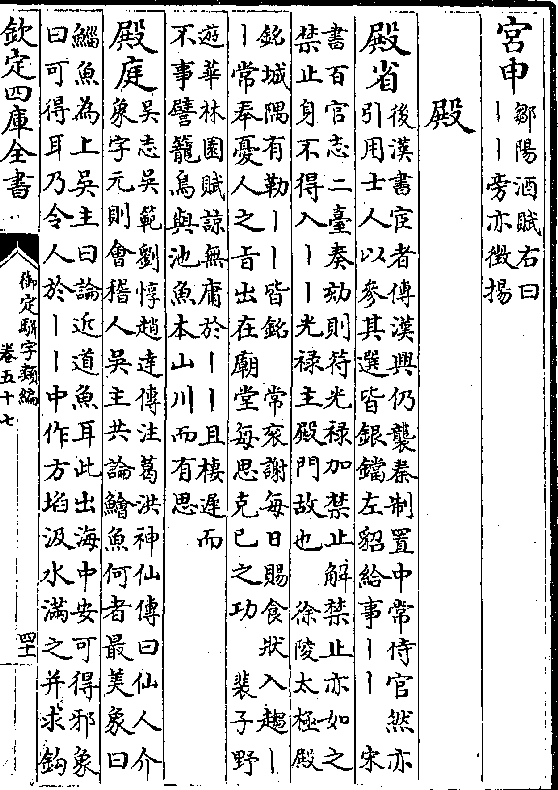 宮申 鄒陽酒賦右曰
丨丨旁亦徵揚
殿
殿省 後漢書宦者傳漢興仍襲秦制置中常侍官然亦
引用士人以參其選皆銀鐺左貂給事丨丨 宋
書百官志二臺奏劾則符光禄加禁止解禁止亦如之
禁止身不得入丨丨光禄主殿門故也 徐陵太極殿
銘城隅有勒丨丨皆銘 常衮謝每日賜食狀入趨丨
丨常奉憂人之旨出在廟堂每思克已之功 裴子野
遊華林園賦諒無庸於丨丨且棲遲而
不事譬籠鳥與池魚本山川而有思
殿庭 吳志吳範劉惇趙達傳注葛洪神仙傳曰仙人介
象字元則會稽人吳主共論鱠魚何者最美象曰
鯔魚為上吳主曰論近道魚耳此出海中安可得邪象
曰可得耳乃令人於丨丨中作方埳汲水滿之并求鈎
欽定四庫全書
御定駢字類編
卷五十七
四十一